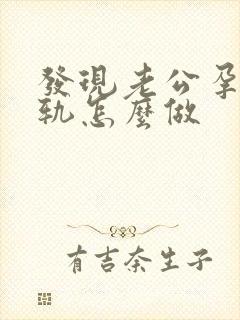 發現老公孕
軌怎麼做
有吉奈生子